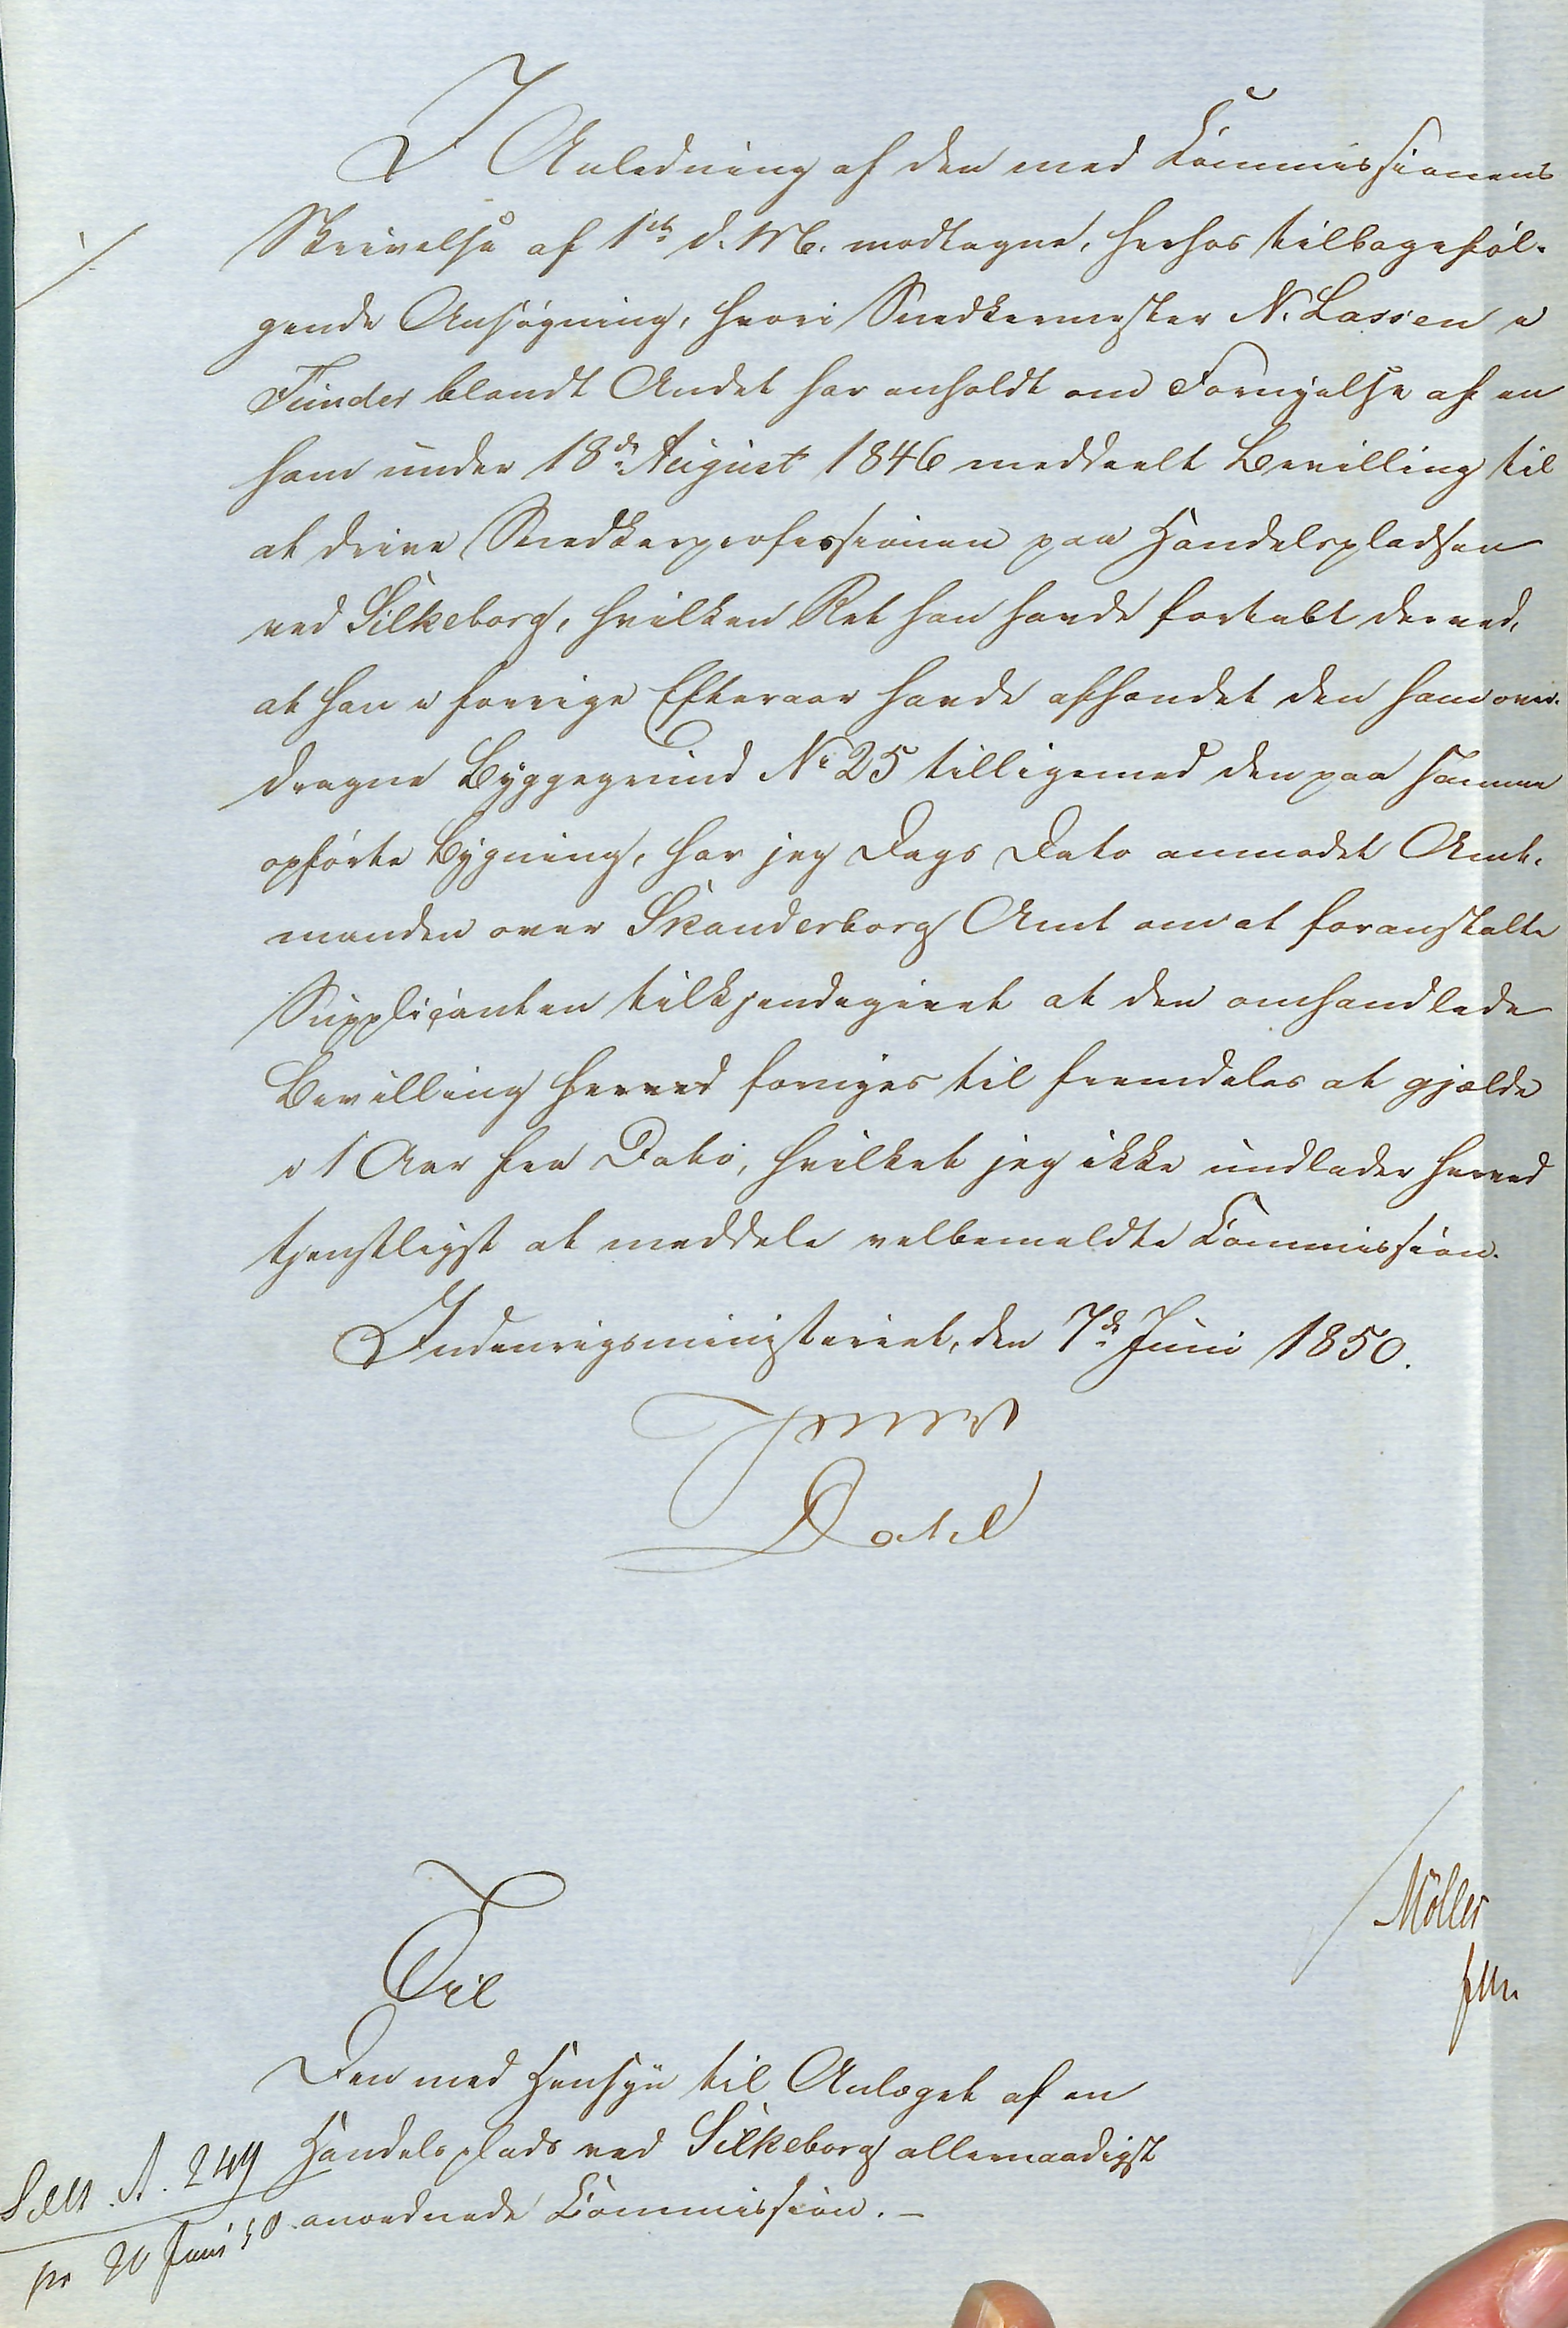 I Anledning af den med Commissionens
Skrivelse af 1ste d. M. modtagne, herhos tilbageføl-
gende Ansøgning, hvori Snedkermester N. Lassen i
Funder blandt Andet har anholdt om Fornyelse af en
ham under 18de August 1846 meddeelt Bevilling til
at drive Snedkerprofessionen paa Handelspladsen
ved Silkeborg, hvilken Ret han havde fortabt derved,
at han i forrige Efteraar havde afhændet den ham over-
dragne Byggegrund No 25 tilligemed den paa samme
opførte Bygning, har jeg Dags Dato anmodet Amt-
manden over Skanderborg Amt om at foranstalte
Supplicanten tilkjendegivet at den omhandlede
Bevilling herved fornyes til fremdeles at gjælde
i 1 Aar fra Dato, hvilket jeg ikke undlader herved
tjenstligst at meddele velbemeldte Commission.
Indenrigsministeriet, den 7de Juni 1850.
Dahl
Møller
fm.
Til
Den med Hensyn til Anlæget af en
Handelsplads ved Silkeborg allernaadigst
anordnede Commission. –
A. 249
pr 20 Juni 50